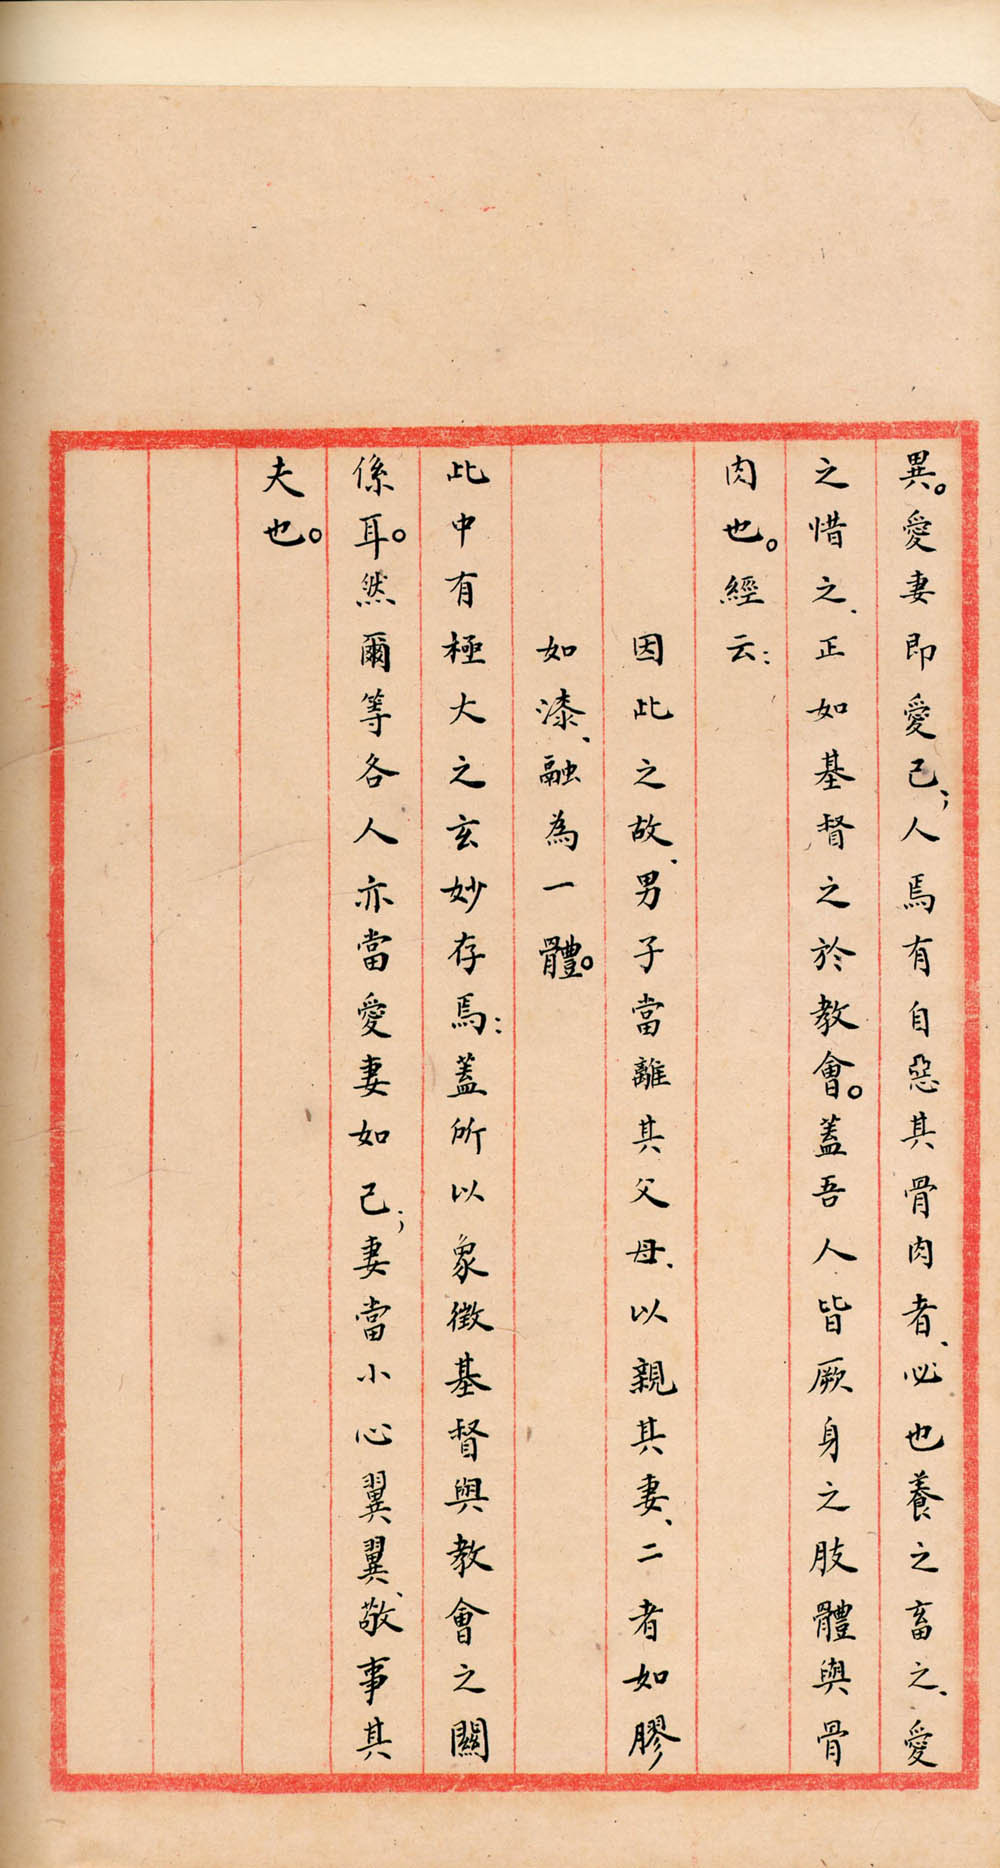 異。愛妻即愛己；人焉有自惡其骨肉者、必也養之畜之、愛
之惜之、正如基督之於教會。蓋吾人皆厥身之肢體與骨
肉也。經云：
因此之故、男子當離其父母、以親其妻、二者如膠
如漆、融為一體。
此中有極大之玄妙存焉：蓋所以象徵基督與教會之關
係耳。然爾等各人亦當愛妻如己；妻當小心翼翼、敬事其
夫也。